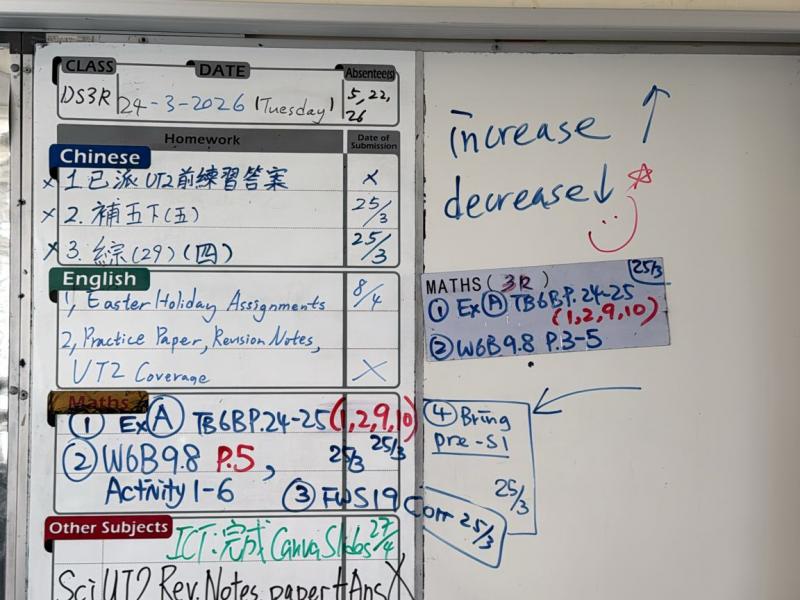 CLASS DATE Absentee(s)
DS3R 24-3-2026 (Tuesday) 5, 22, 26
Homework Date of Submission
Chinese
x 1. 已派UT2前練習答案 x
x 2. 補五下(五) 25/3
x 3. 綜(29)(四) 25/3
English
1, Easter Holiday Assignments 8/4
2, Practice Paper, Revision Notes,
UT2 Coverage X
Maths
① Ex Ⓐ TB6BP.24-25 (1,2,9,10) 25/3
② W6B9.8 P.5, 25/3
Activity 1-6 ③ FWS19 Corr 25/3
Other Subjects
ICT: 完成Canva Slides 27/4
Sci UT2 Rev. Notes, paper+Ans X
increase ↑
decrease ↓
MATHS (3R) 25/3
① Ex Ⓐ TB6BP.24-25
(1,2,9,10)
② W6B9.8 P.3-5
④ Bring
pre-S1
25/3